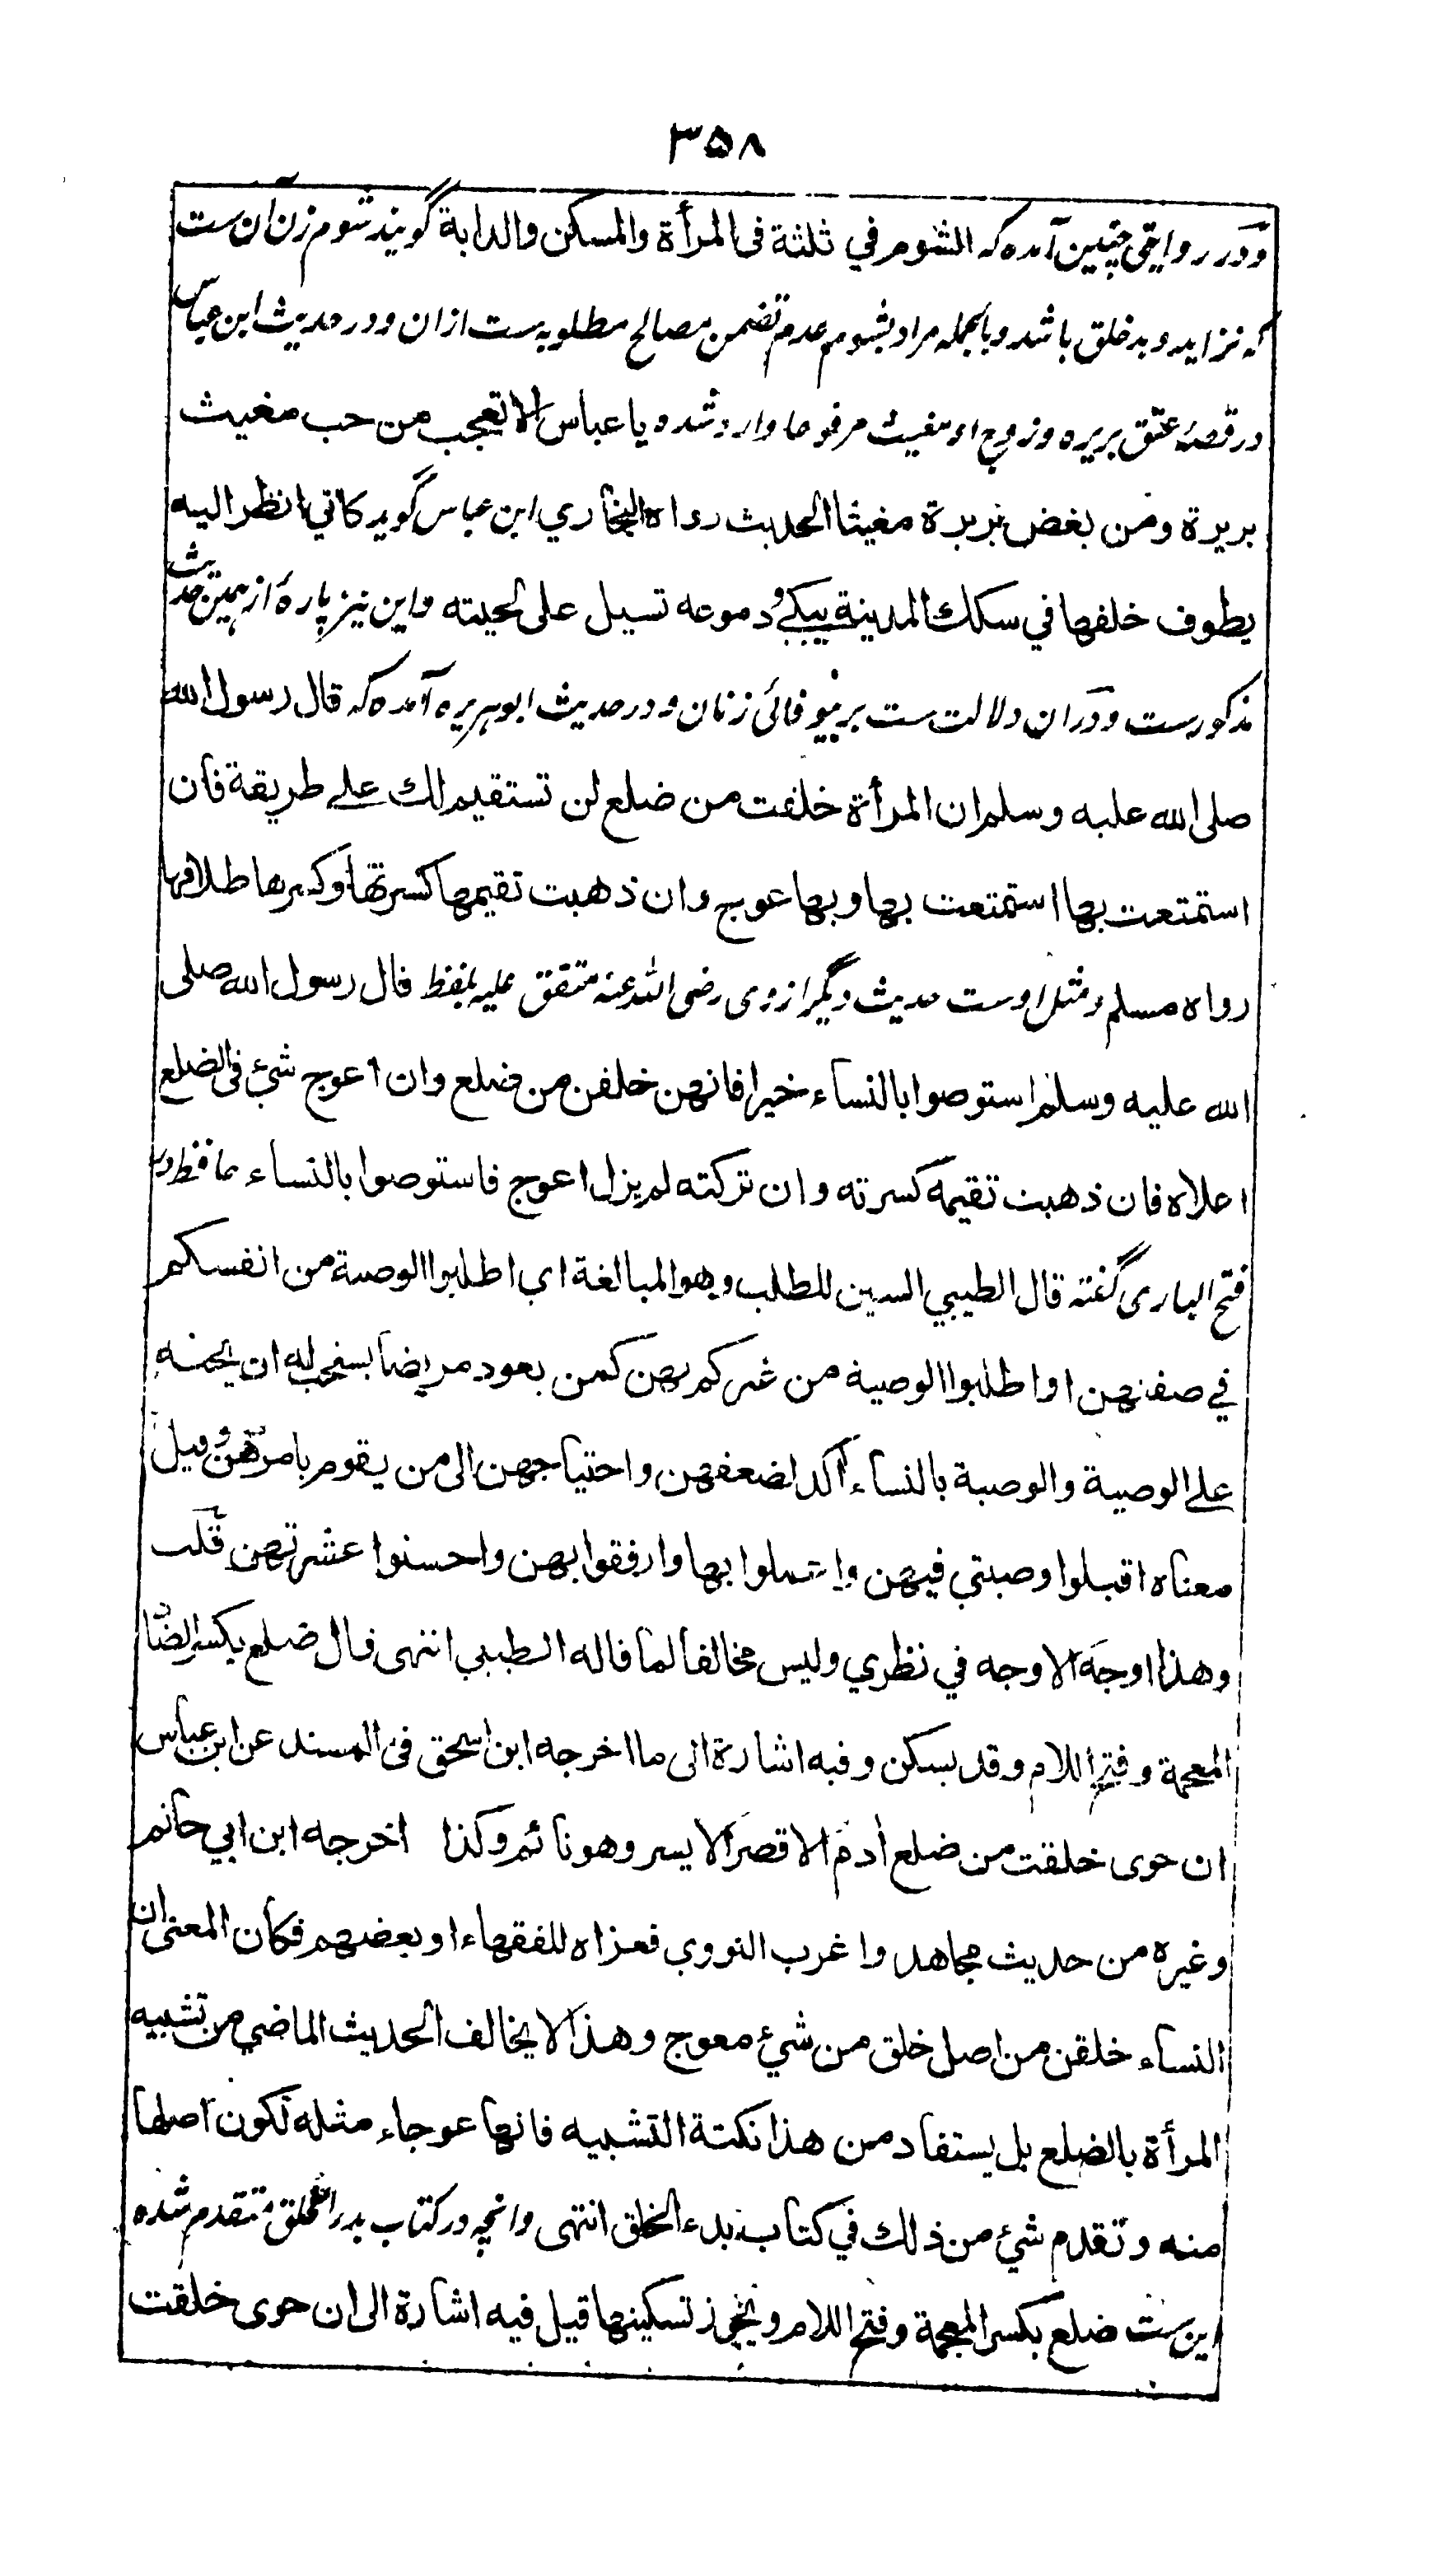 ۳۵۸
ودر روایتی چنین آمده که الشوم في ثلثة فى المرأة والمسكن والدابة گویند شوم زن آن ست
که نزاید و بدخلق باشد وبالجمله مراد بشوم عدم تضمن مصالح مطلوبه ست ازان ودر حدیث ابن عباس
در قصهٔ عتق بریره وزوج او مغیث مرفوعا وارد شده يا عباس الا تعجب من حب مغيث
بريرة ومن بغض بريرة مغيثا الحديث رواه البخاري ابن عباس گوید كاني انظر اليه
يطوف خلفها في سكك المدينة يبكے ودموعه تسيل على لحيته واین نیز پارهٔ از همین حدیث
مذکورست ودران دلالت ست بر بیوفائی زنان ودر حدیث ابوهریره آمده که قال رسول الله
صلى الله عليه وسلم ان المرأة خلقت من ضلع لن تستقيم لك علے طريقة فان
استمتعت بها استمتعت بها وبها عوج وان ذهبت تقيمها كسرتها وكسرها طلاقها
رواه مسلم ومثل اوست حدیث دیگر ازوی رضی الله عنه متفق علیه بلفظ قال رسول الله صلى
الله عليه وسلم استوصوا بالنساء خيرا فانهن خلقن من ضلع وان اعوج شئ فى الضلع
اعلاه فان ذهبت تقيمه كسرته وان تركته لم يزل اعوج فاستوصوا بالنساء حافظ در
فتح الباری گفته قال الطيبي السين للطلب وهو المبالغة اي اطلبوا الوصية من انفسكم
في صفتهن او اطلبوا الوصية من غيركم بهن كمن يعود مريضا يستحب له ان يحثه
علے الوصية والوصية بالنساء آكد لضعفهن واحتياجهن الى من يقوم بامرهن وقيل
معناه اقبلوا وصيتي فيهن واعملوا بها وارفقوا بهن واحسنوا عشرتهن قلت
وهذا اوجه الاوجه في نظري وليس مخالفا لما قاله الطيبي انتهى قال ضلع بكسر الضاد
المعجمة وفتح اللام وقد يسكن وفيه اشارة الى ما اخرجه ابن اسحق فى المسند عن ابن عباس
ان حوى خلقت من ضلع آدم الاقصر الايسر وهو نائم وكذا اخرجه ابن ابي حاتم
وغيره من حديث مجاهد واغرب النووي فعزاه للفقهاء او بعضهم فكأن المعنى ان
النساء خلقن من اصل خلق من شيئ معوج وهذا لا يخالف الحديث الماضي من تشبيه
المرأة بالضلع بل يستفاد من هذا نكتة التشبيه فانها عوجاء مثله لكون اصلها
منه وتقدم شيئ من ذلك في كتاب بدء الخلق انتهى وانچه در کتاب بدء الخلق متقدم شده
این ست ضلع بكسر المعجمة وفتح اللام ويجوز تسكينها قيل فيه اشارة الى ان حوى خلقت